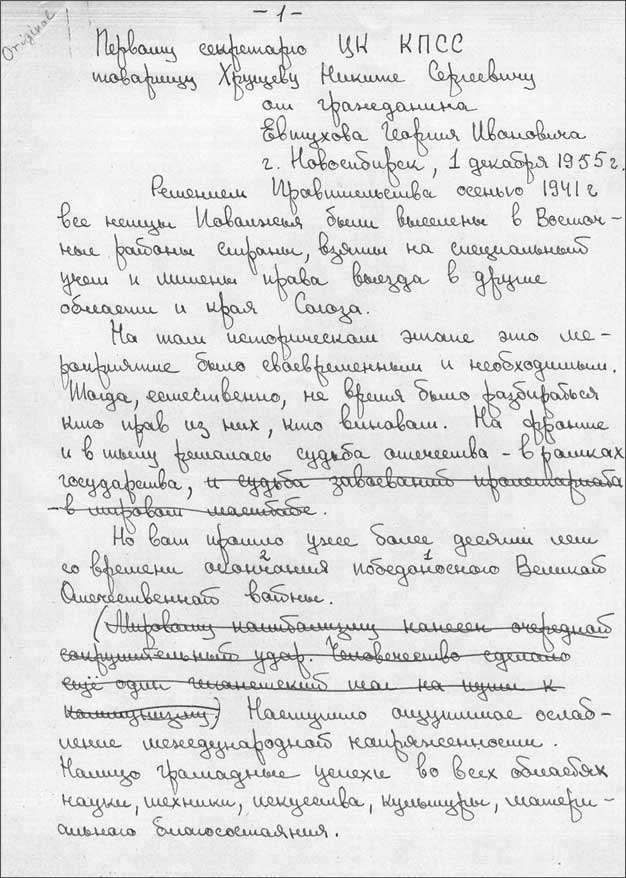 Original
- 1 -
Первому секретарю ЦК КПСС
товарищу Хрущеву Никите Сергеевичу
от гражданина
Евтухова Георгия Ивановича
г. Новосибирск, 1 декабря 1955 г.
Решением Правительства осенью 1941 г
все немцы Поволжья были выселены в Восточ-
ные районы страны, взяты на специальный
учет и лишены права выезда в другие
области и края Союза.
На том историческом этапе это ме-
роприятие было своевременным и необходимым.
Тогда, естественно, не время было разбираться
кто прав из них, кто виноват. На фронте
и в тылу решалась судьба отечества - в рамках
государства, и судьба завоеваний пролетариата
- в мировом масштабе.
Но вот прошло уже более десяти лет
2 1
со времени окончания победоносного Великой
Отечественной войны.
(Мировому капитализму нанесен очередной
сокрушительный удар. Человечество сделало
ещё один гигантский шаг на пути к
коммунизму.) Наступило ощутимое ослаб-
ление международной напряженности.
Налицо громадные успехи во всех областях
науки, техники, искусства, культуры, матери-
ального благосостояния.